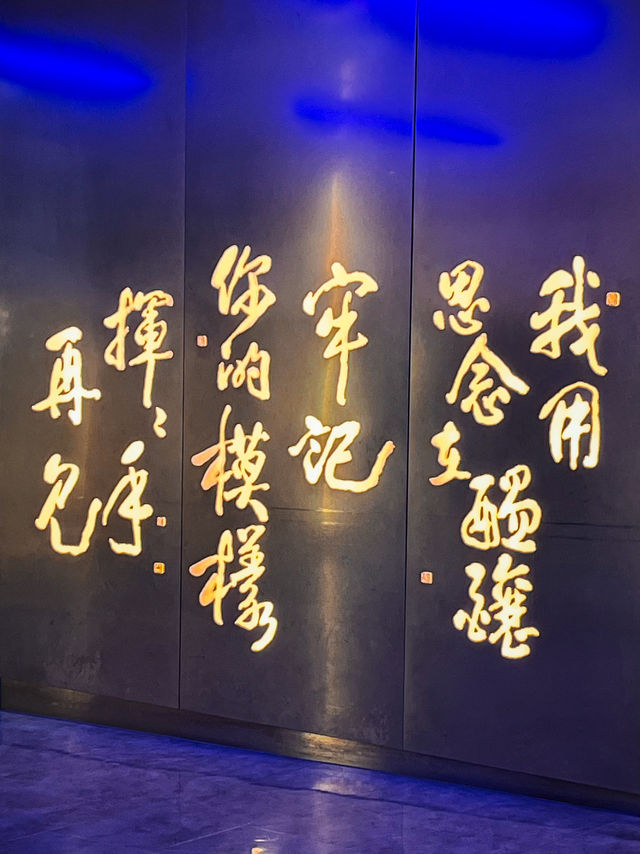 我用
思念在醞釀
牢記
你的模樣
揮〻手
再見